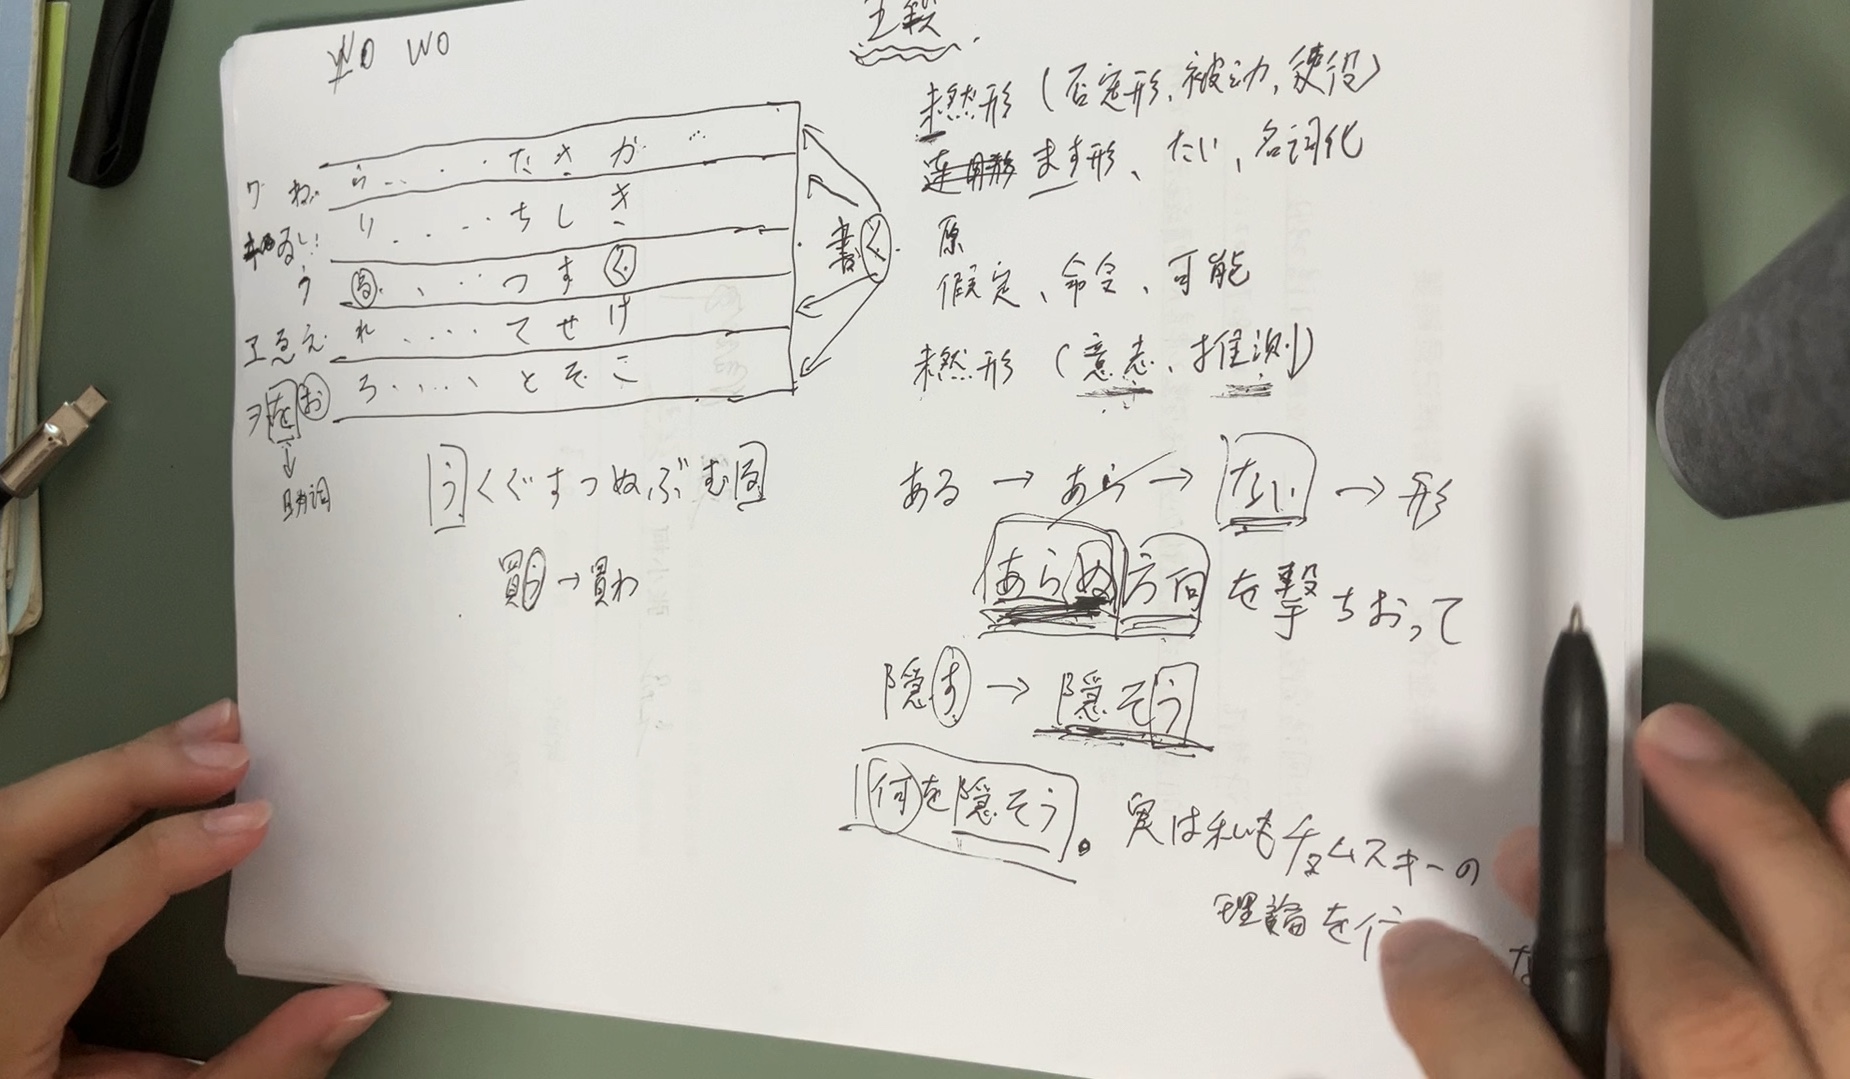 wo wo
五段
ワ わ ら・・・・たさか…
ゐい り・・・・ちしき
う る・・・・つすく
ヱゑえ れ・・・・てせけ
ヲをお ろ・・・・とそこ
書く
助词
うくぐすつぬぶむる
買う→買わ
未然形(否定形、被动、使役)
连用形 ます形、たい、名词化
原
假定、命令、可能
未然形(意志、推测)
ある→あら→ない→形
あらぬ方向を撃ちおって
隠す→隠そう
何を隠そう。実は私もチョムスキーの
理論を